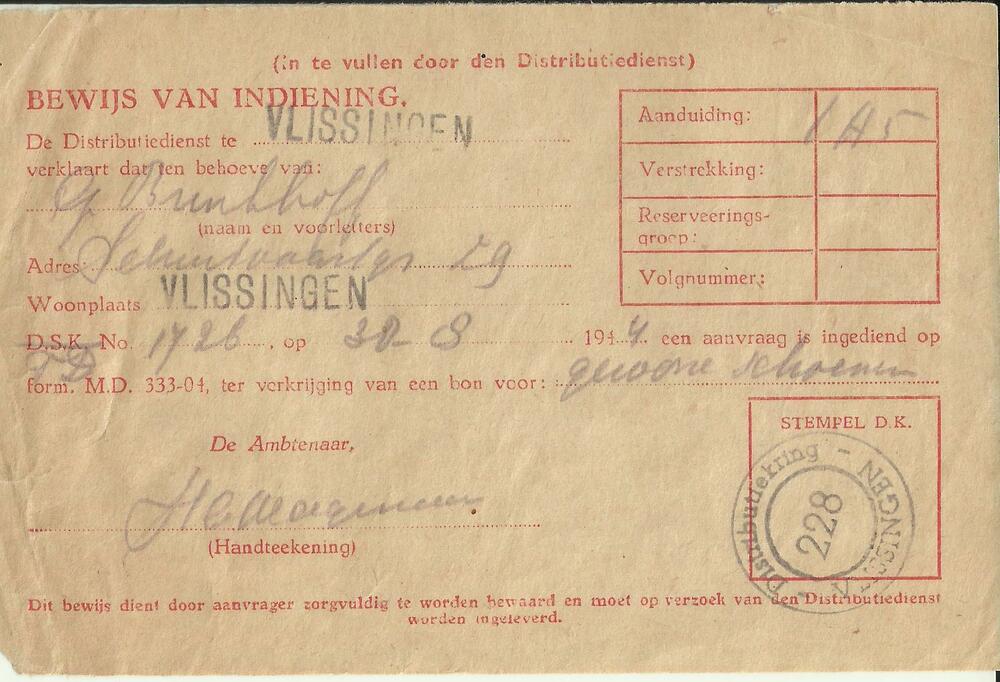 (in te vullen door den Distributiedienst)
BEWIJS VAN INDIENING.
De Distributiedienst te VLISSINGEN
verklaart dat ten behoeve van:
(naam en voorletters)
Adres: 29
Woonplaats VLISSINGEN
D.S.K. No. 1726, op 30-8 1944 een aanvraag is ingediend op
form. M.D. 333-04, ter verkrijging van een bon voor: gewone schoenen
Aanduiding:
Verstrekking:
Reserveerings-
groep:
Volgnummer:
De Ambtenaar,
(Handteekening)
STEMPEL D.K.
Distributiekring - VLISSINGEN -
228
Dit bewijs dient door aanvrager zorgvuldig te worden bewaard en moet op verzoek van den Distributiedienst
worden ingeleverd.